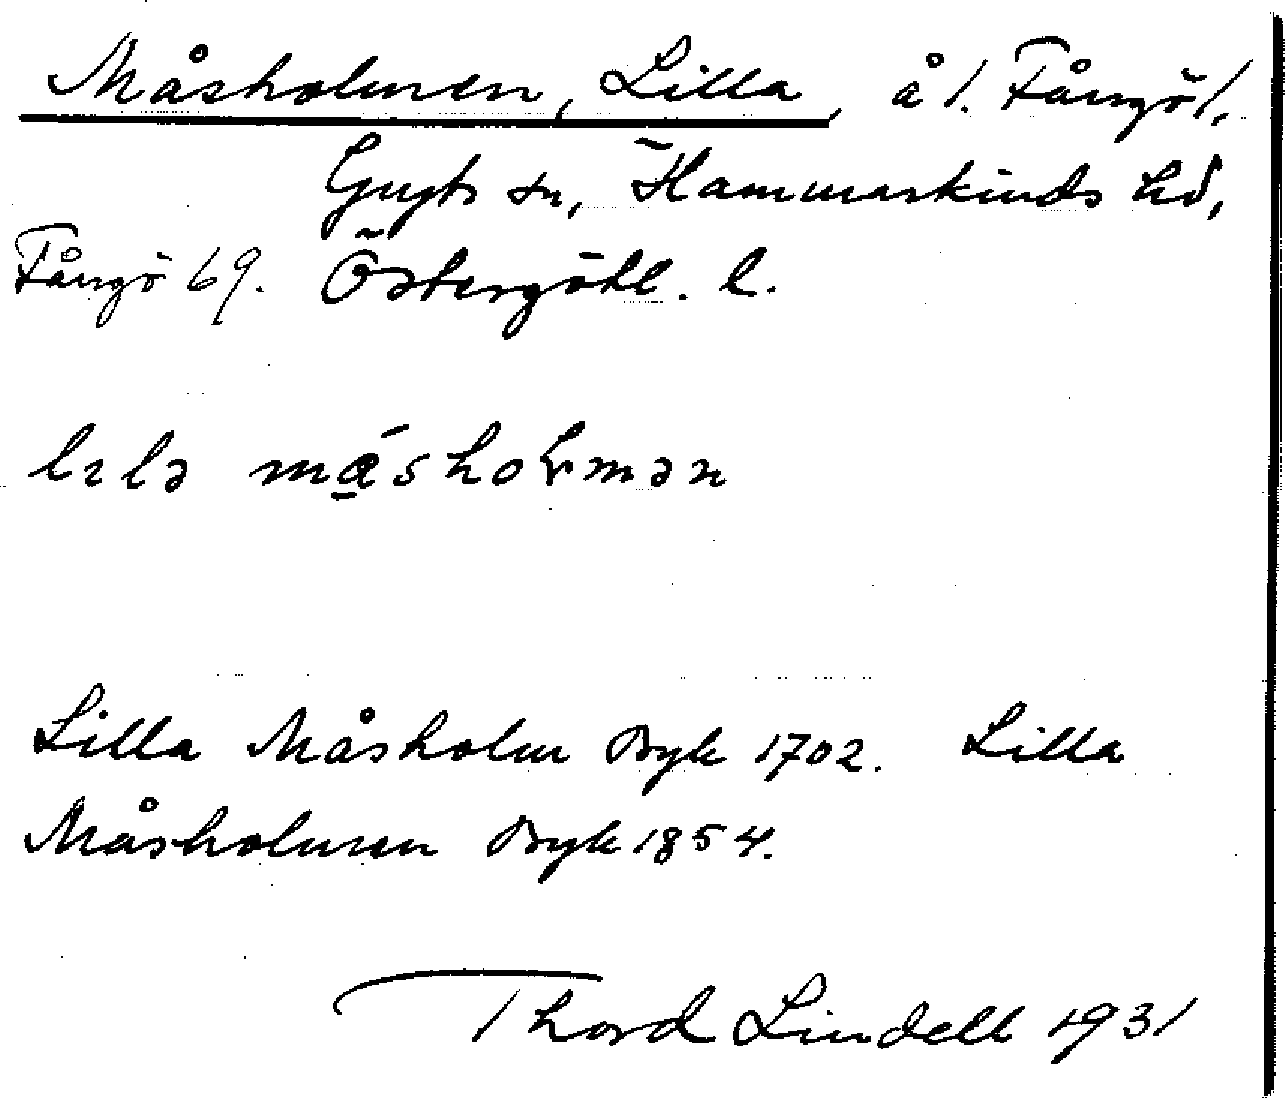 Måsholmen, Lilla, å /. Fångö/.
Gryts sn, Hammarkinds hd,
Fångö 69. Östergötl. l.
lɩlə mǻshoɫmən
Lilla Måsholm Byk 1702. Lilla
Måsholmen Byk 1854.
Thord Lindell 1931